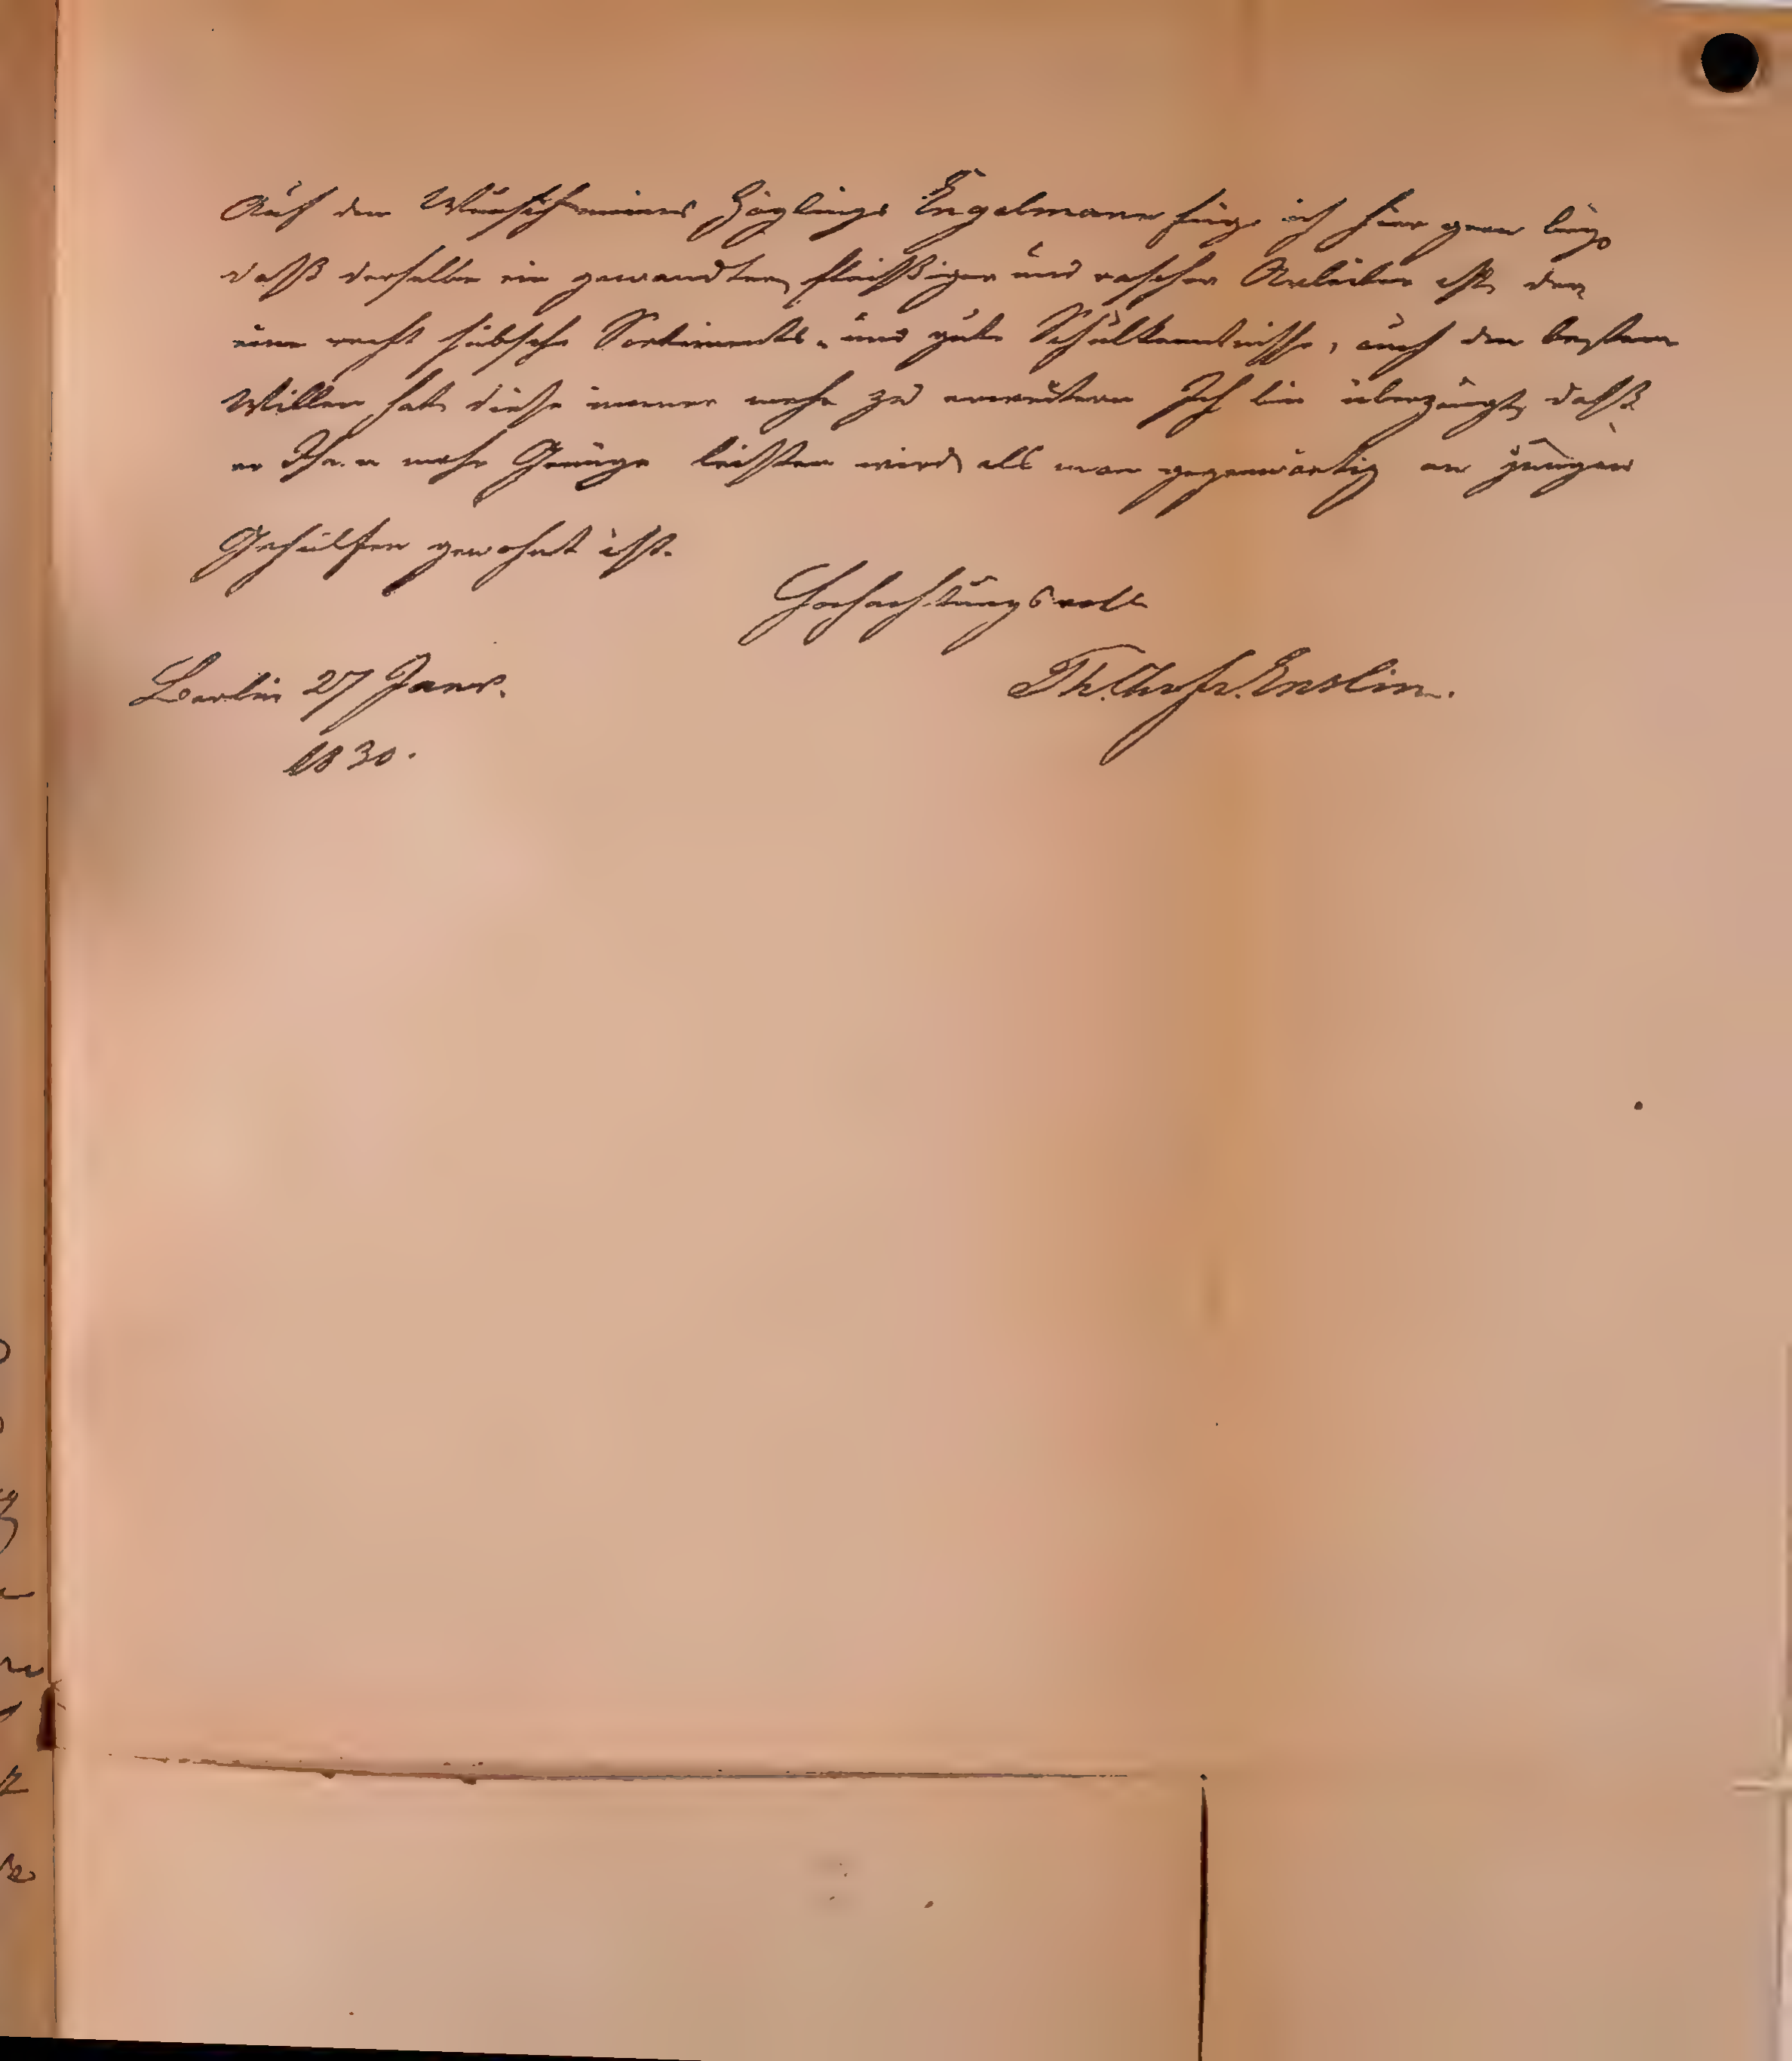 Auf den Wunsch meines Zöglings Engelmann füge ich hier gern bey,
daß derselbe ein gewandter, fleißiger und rascher Arbeiter ist, der
eine recht hübsche Sortiments- und gute Schulkenntnisse, auch den besten
Willen hat, diese immer mehr zu erweitern. Ich bin überzeugt, daß
er Ihnen mehr Genüge leisten wird, als man gegenwärtig an jungen
Gehülfen gewohnt ist.
Hochachtungsvoll
Berlin 27 Janr.
Th. Chr. Fr. Enslin.
1830.